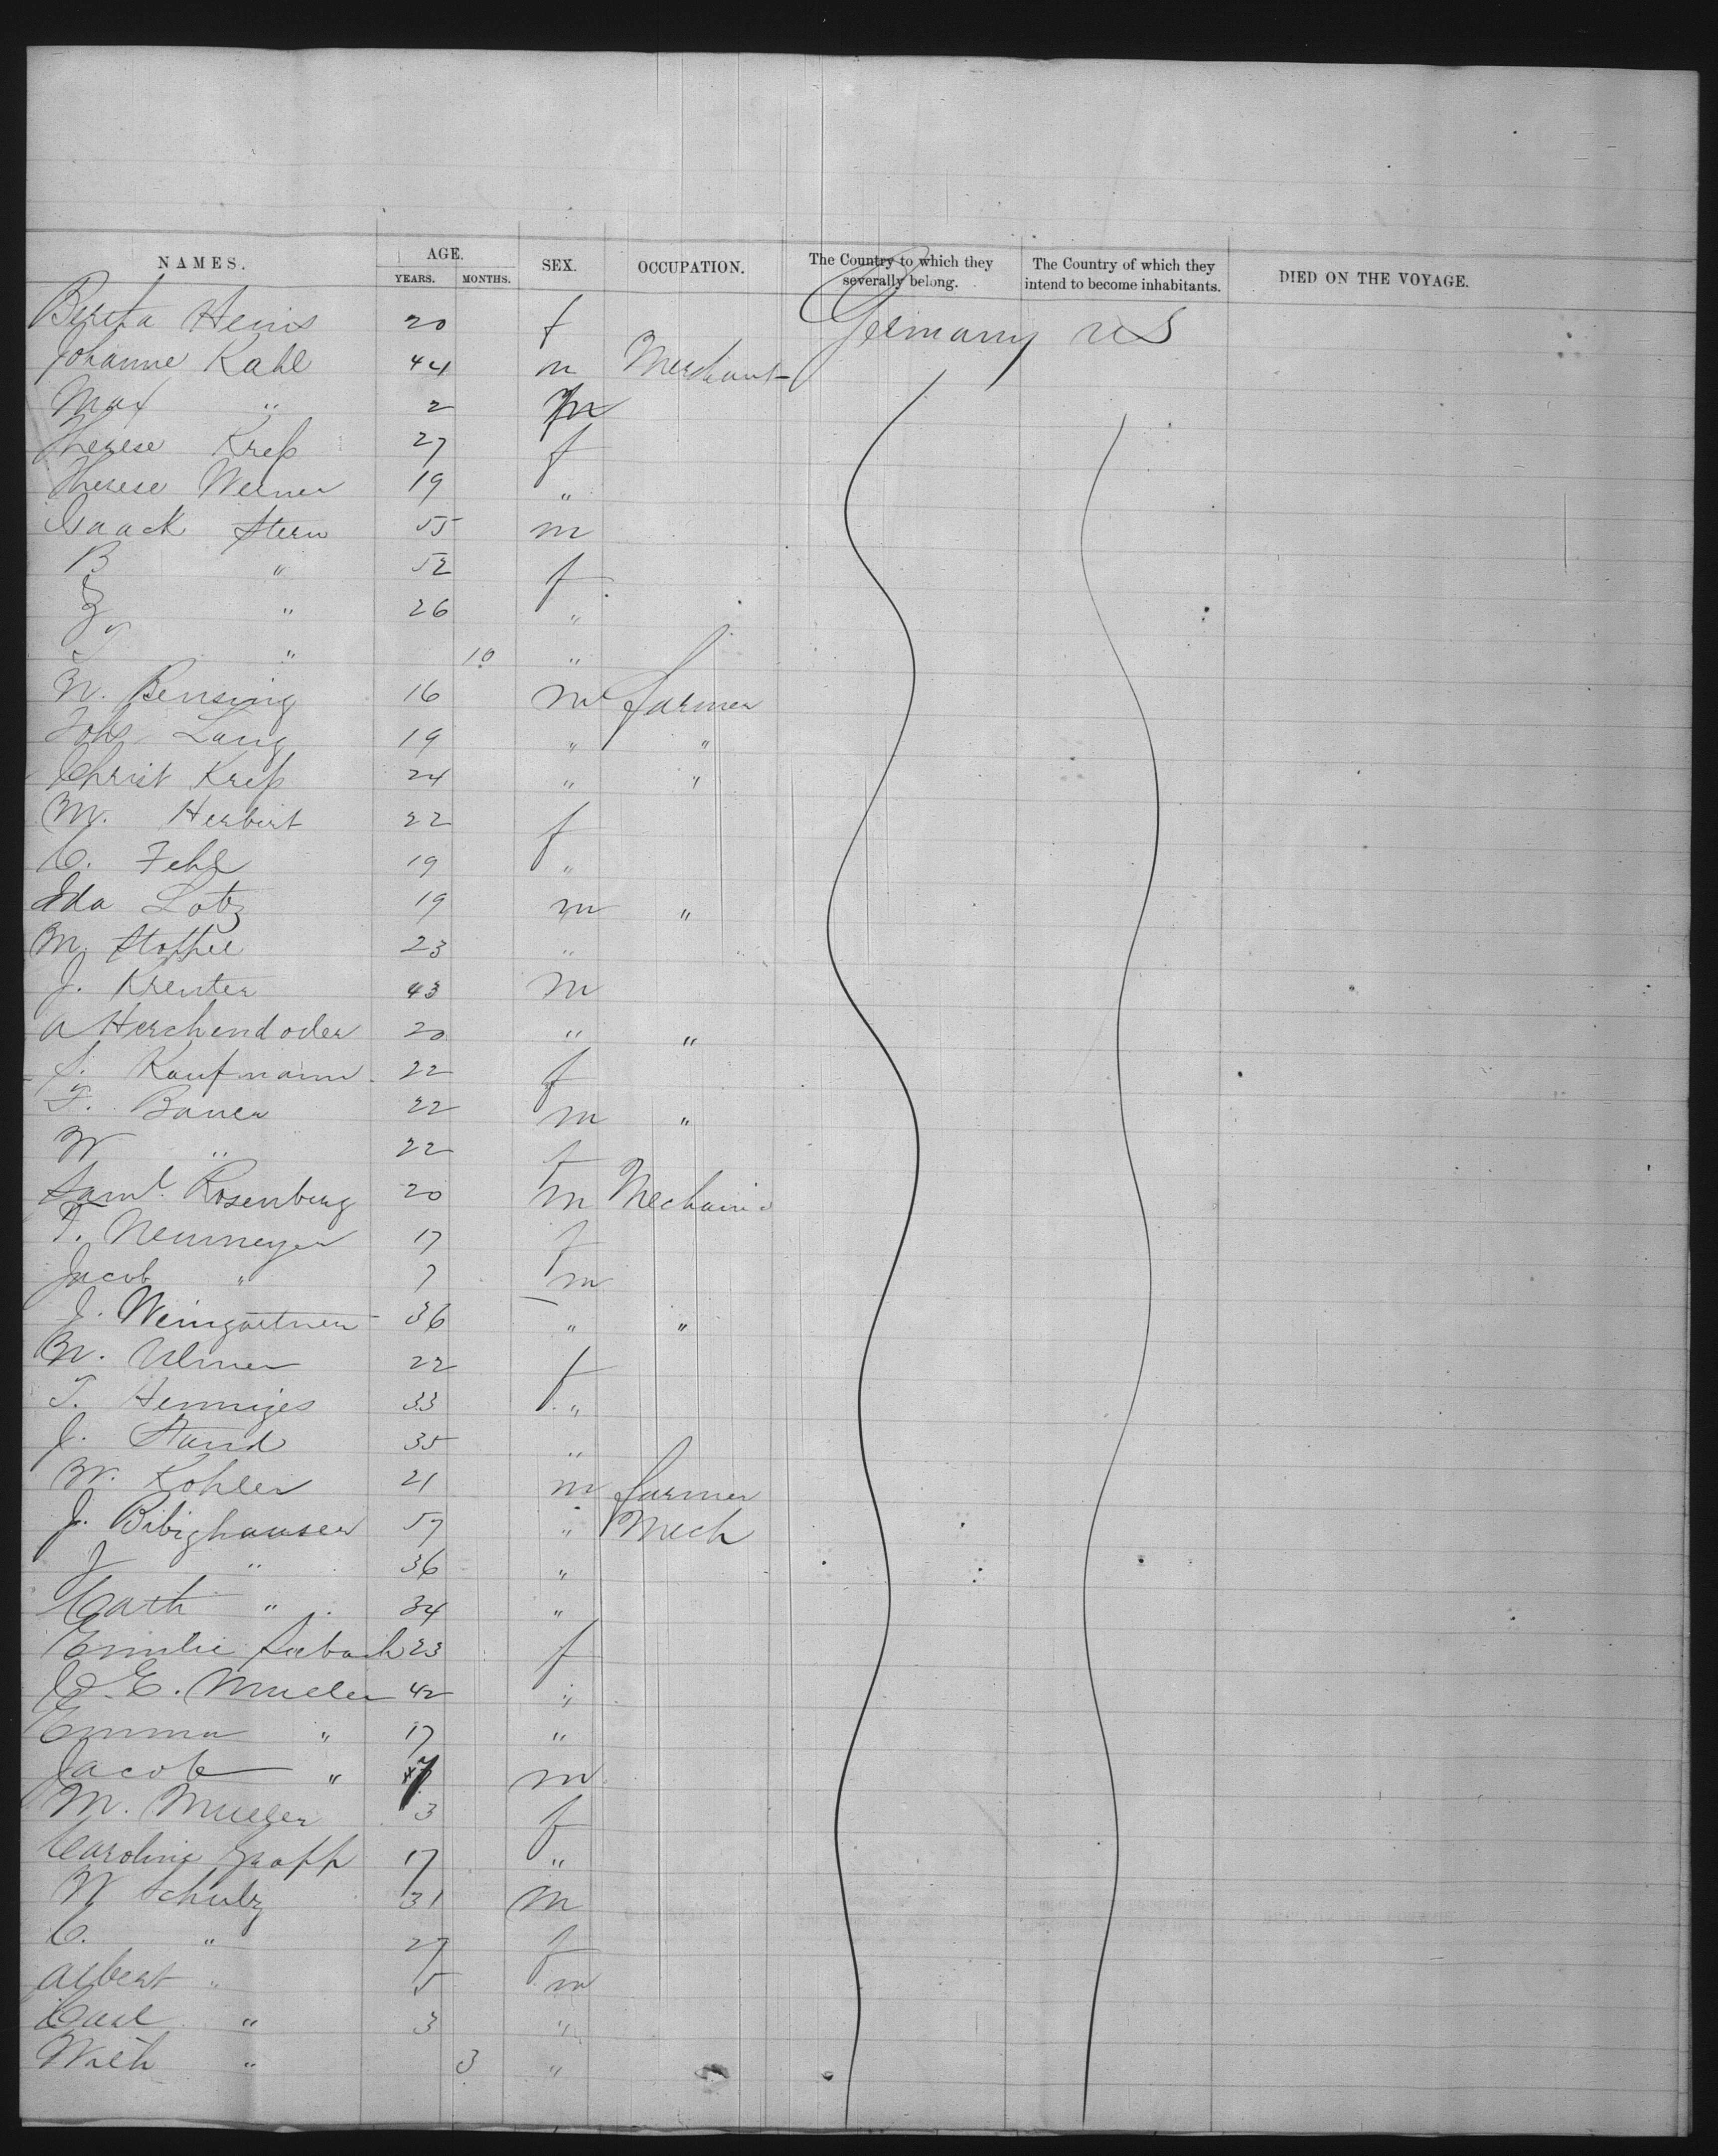 NAMES. AGE. SEX. OCCUPATION. The Country to which they severally belong. The Country of which they intend to become inhabitants. DIED ON THE VOYAGE.
YEARS. MONTHS.
Berta Heins 20 f Germany US
Johanne Kahl 44 m Merchant
Max " 2 m
Therese Kreß 27 f
Therese Werner 19 "
Isaack Stern 55 m
B " 52 f
" 26 "
" 10 "
N. Bensing 16 m farmer
Johs Lang 19 " "
Christ Kreß 24 " "
M. Herbert 22 f
C. Fehl 19 "
Ida Lotz 19 m "
M. Stoffel 23 "
J. Kreuter 43 m
A Herchendoder 20 " "
S. Kaufmann 22 f
F. Bauer 22 m "
W " 22 f
Saml. Rosenberg 20 m Mechanic
T. Neumeyer 17 f
Jacob " 7 m
J. Weingaetner 36 " "
M. Ulmer 22 f
T. Henniges 33 "
J. Stand 35 "
W. Kohler 21 m farmer
J. Bibighauser 57 " Mech
J " 36 "
Cath " 34 "
Emilie 23 f
C. E. Mueller 42 "
Emma " 17 "
Jacob " 7 m
M. Mueller 3 f
Caroline Graff 17 "
W Schulz 31 m
C. " 27 f
Albert " 5 m
Carl " 3 "
Wilh " 3 "